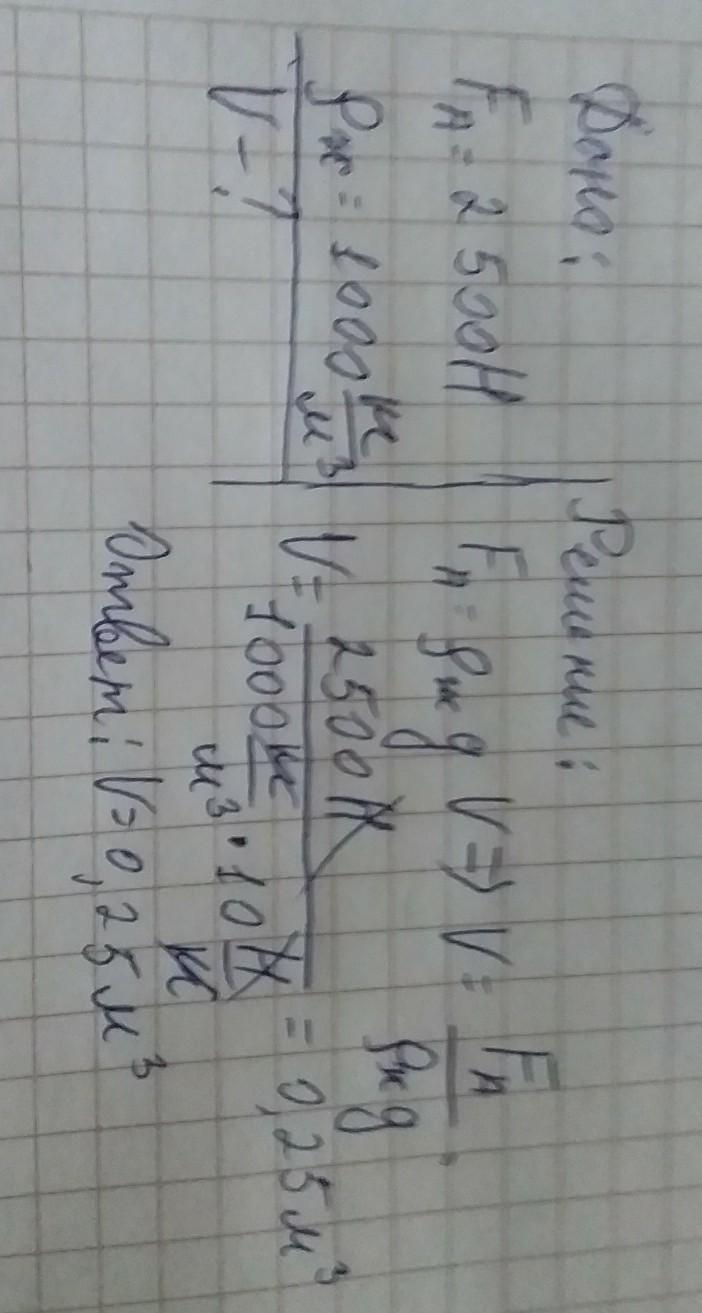 Дано:
Fп = 2500Н
ρж = 1000 кг/м³
V - ?
Решение:
Fп = ρж g V => V = Fп / ρж g.
V = 2500 Н / 1000 кг/м³ · 10 Н/кг = 0,25 м³
Ответ: V = 0,25 м³